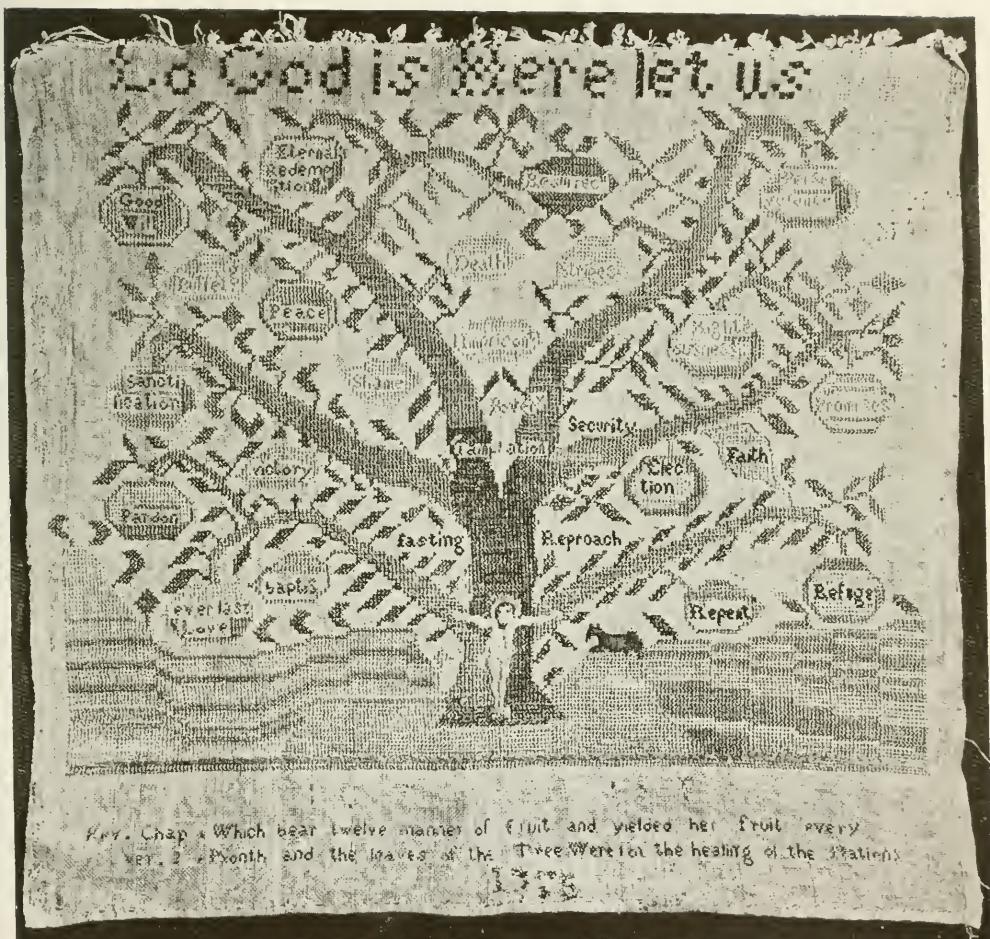 Lo God is Here let us
Eternal
Redemp
tion
Resurrec
Perse
verance
Good
Will
Death
Stripes
Suffer
Peace
Righte
ousness
Shame
Sancti
fication
Promises
Security
Faith
Elec
tion
Victory
Pardon
fasting
Reproach
bapti
everlast
Love
Repent
Refuge
Rev. Chap Which bear twelve manner of fruit and yielded her fruit every
ver. 2 Month and the leaves of the Tree Were for the healing of the Nations